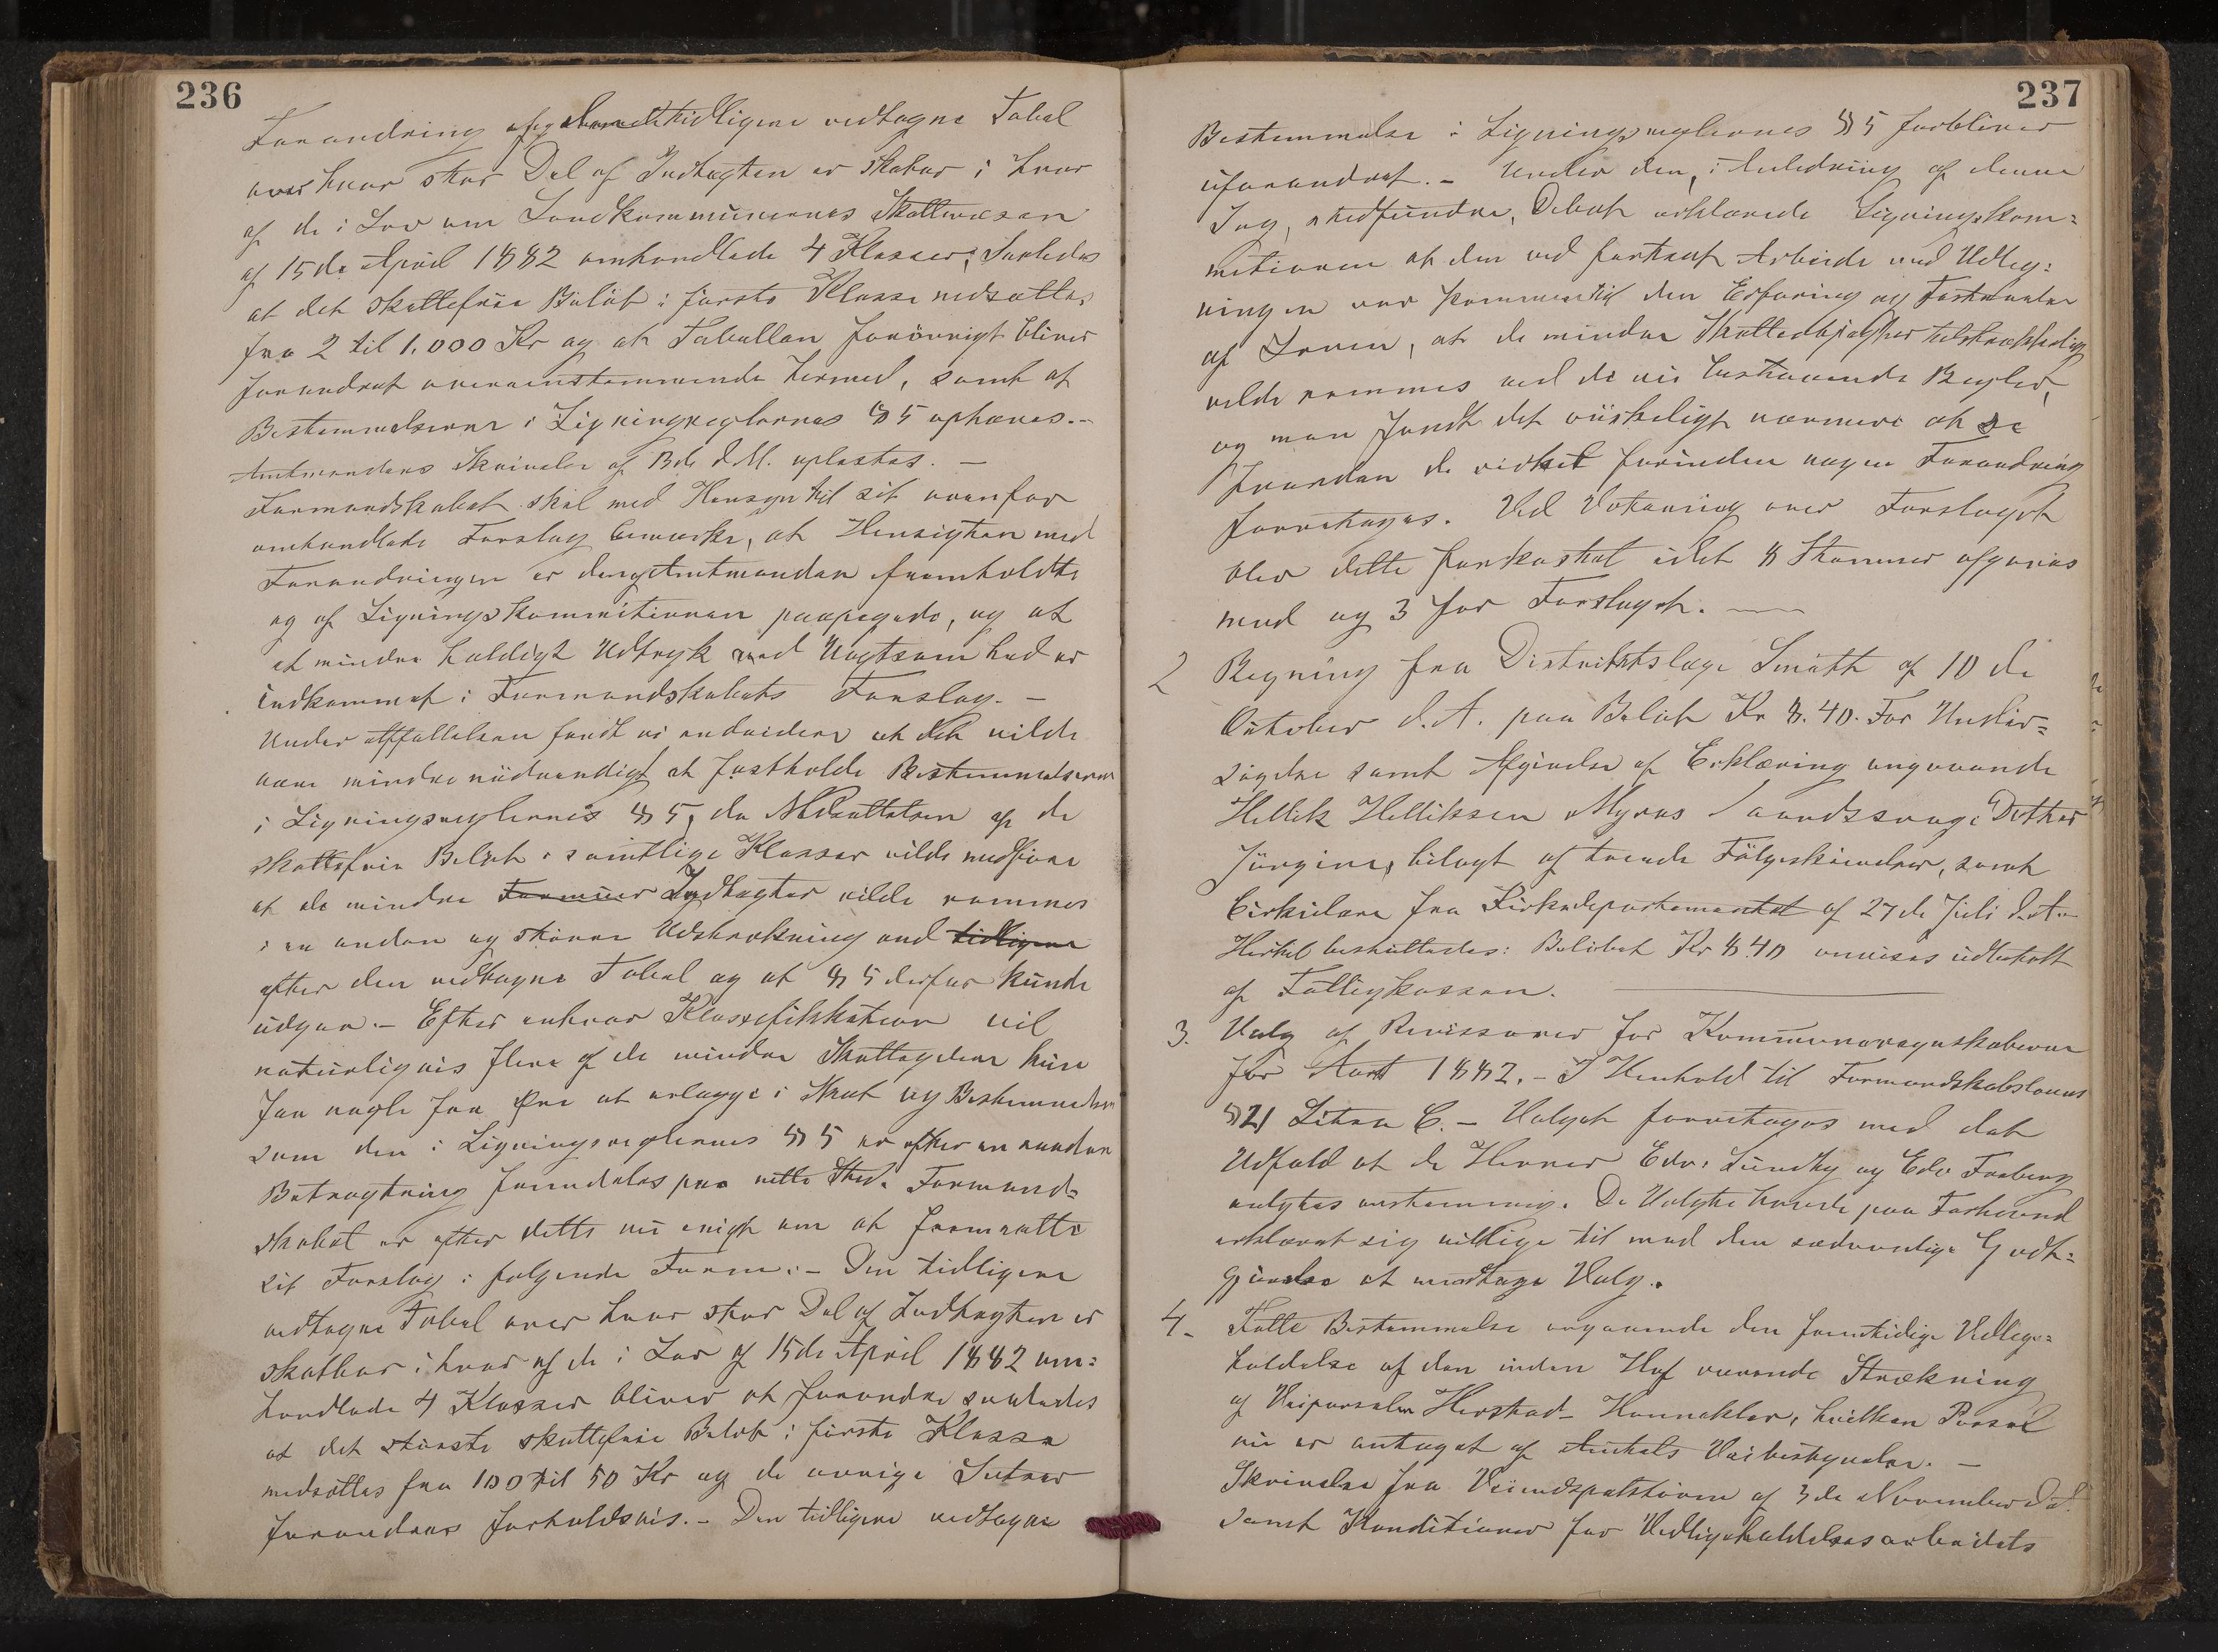 236
Forandring af den tidligere vedtagne Tabel
over hvor stor Del af Indtægten er skatbar i hver
af de i Lov om Landkommunernes Skattevæsen
af 15de April 1882 omhandlede 4 Klasser, saaledes
at det skattefrie Beløb i første Klasse nedsættes
fra 2 til 1.000 Kr og at Tabellen forøvrigt bliver
forandret overensstemmende hermed, samt at
Bestemmelserne i Ligningsreglernes § 5 ophæves.-
Amtmandens Skrivelse af d. M. oplæstes. -
Formandskabet skal med Hensyn til sit ovenfor
omhandlede Forslag bemærke, at Hensigten med
Forandringen er den af Amtmanden fremholdte
og af Ligningskommissionen paapegede, og at
et mindre heldigt Udtryk ved Uagtsomhed er
indkommet i Formandskabets Forslag. -
Under Affattelsen fandt vi endvidere at det vilde
være mindre nødvendigt at fastholde Bestemmelserne
i Ligningsreglernes § 5, da Nedsættelsen af de
skattefrie Beløb i samtlige Klasser vilde medføre
at de mindre Formuer Indtægter vilde rammes
i en anden og større Udstrækning end tidligere
efter den vedtagne Tabel og at § 5 derfor kunde
udgaa. - Efter enhver Klassefikation vil
naturligvis flere af de mindre Skatteydere kun
faa nogle faa Øre at erlægge i Skat og Bestemmelse
som den i Ligningsreglernes § 5 er efter en anden
Betragtning fremdeles paa rette Sted. Formand-
skabet er efter dette nu enigt om at fremsætte
sit Forslag i følgende Form: - Den tidligere
vedtagne Tabel over hvor stor Del af Indtægten er
skatbar i hver af de i Lov af 15de April 1882 om-
handlede 4 Klasser bliver at forandre saaledes
at det største skattefrie Beløb i første Klasse
nedsættes fra 100 til 50 Kr og de øvrige Satser
forandres forholdsvis. - Den tidligere vedtagne
237
Bestemmelse i Ligningsreglernes § 5 forbliver
uforandret. - Under den, i Anledning af denne
Sag, stedfundne, Debat erklærede Ligningskom-
missionen at den ved fortsat Arbeide med Udlig-
ningen var kommen til den Erfaring og Forstaaelse
af Loven, at de mindre Skatteobjekter tilstrækkelig
vilde rammes ved de nu bestaaende Regler,
og man fandt det ønskeligt nærmere at se
hvordan de virket forinden nogen Forandring
foretages. Ved Votering over Forslaget
blev dette forkastet idet 8 Stemmer afgaves
mod og 3 for Forslaget. -
2 Regning fra Distriktslæge Smith af 10de
Oktober d. A. paa Beløb Kr 8.40. For Under-
søgelse samt Afgivelse af Erklæring angaaende
Hellik Helliksen Myras sindssyge Datter
Jørgine, bilagt af tvende Følgeskrivelser, samt
Cirkulære fra Kirkedepartementet af 27de Juli d. A.
Hertil besluttedes: Beløbet Kr 8.40 anvises udbetalt
af Fattigkassen.
3. Valg af Revisorer for Kommuneregnskaberne
for Aaret 1882. - I Henhold til Formandskabslovens
§ 21 Litra C. - Valget foretages med det
Udfald at de Herrer Edv: Lundby og Edv Forberg
valgtes enstemmig. De Valgte havde paa Forhaand
erklæret sig villige til mod den sædvanlige Godt-
gjørelse at modtage Valg.
4. Fatte Bestemmelse angaaende den fremtidige Vedlige-
holdelse af den inden Hof værende Strækning
af Veiparselen Herstad - Hanekleo, hvilken Parsel
nu er antaget af Amtets Veibestyrelse. -
Skrivelse fra Veiinspektøren af 3de November d. A.
samt Konditioner for Vedligeholdelsesarbeidets